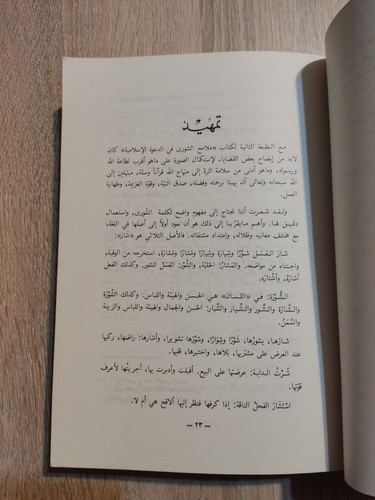 تمهيد
مع الطبعة الثانية لكتاب «ملامح الشورى في الدعوة الإسلامية» كان
لابد من إيضاح بعض القضايا، لإستكمال الصورة على ماهو أقرب لطاعة الله
ورسوله، وماهو أدنى من سلامة البرة إلى منهاج الله قرآناً وسنّة، مبتهلين إلى
الله سبحانه وتعالى أن يهبنا برحمته وفضله، صدق النيّة، وقوة العزيمة، وطهارة
العمل.
ولقد شعرت أننا نحتاج إلى مفهوم واضح لكلمة الشّورى، واستعمال
دقيق لها. وأهم مايقرّبنا إلى ذلك هو أن نعود أولاً إلى أصلها في اللغة،
مع مختلف معانيه وظلاله، وامتداد مشتقاته. فالأصل الثلاثي هو «شَارَ»:
شارَ العَسَل شَوْرًا وشِيَارًا وشِيَارة ومَشَارًا ومَشَارَة، استخرجه من الوقبة،
واجتناه من مواضعه. والمَشَارُ: الخليّة، والشَّوْر: العَسَل المشور. وكذلك الفعل
أشارَهُ، واشْتَارَه.
الشُّوْرَة: في «اللسان» هي الحسن والهيئة واللباس. وكذلك الشَّوْرَة
والشَّارَة والشَّوَر والشِّيَار والشَّيَار: الحسن والجمال والهيئة واللباس والزينة
والسِّمَنُ.
شارَها، يشورُها، شَوْرًا وشِوَارًا، وشَوّرَها تشويراً، وأشارها: راضها، ركبها
عند العرض على مشتريها، بَلاها، واختبرها، قلبها.
شُرْتُ الدابة: عرضتها على البيع، أقبلت وأدبرت بها، أجريتُها لأعرف
قوّتها.
اسْتَشَارَ الفَحلُ الناقة: إذا كرفها فنظر إليها ألاقح هي أم لا.
– ٢٣ –